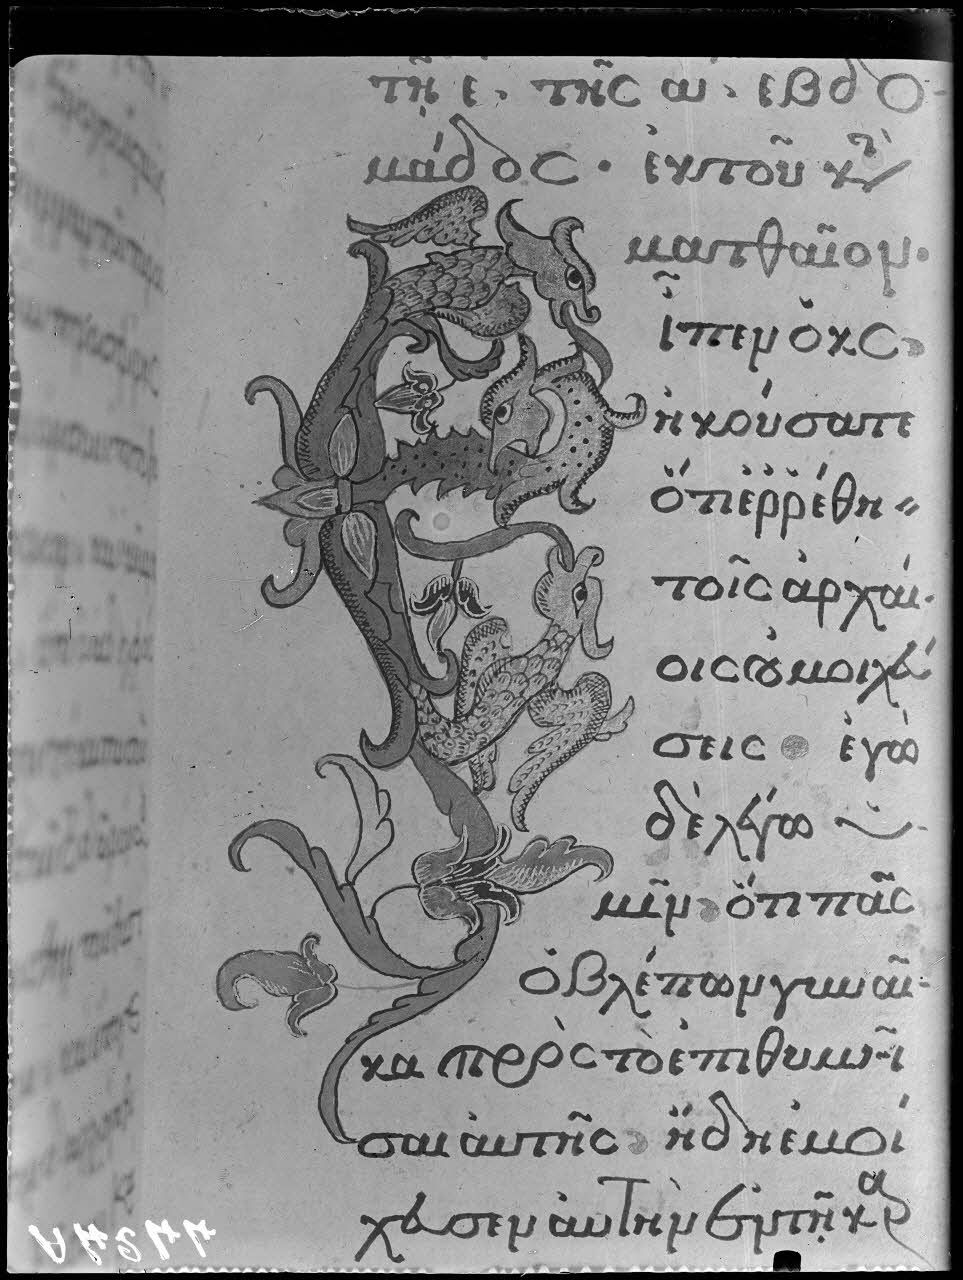 τῇ ε· τῆς αʹ· ἑβδο
μάδος· ἐκ τοῦ κτ
ματθαῖον·
εἶπεν ὁ κς·
ἠκούσατε
ὅτι ἐρρέθη
τοῖς ἀρχαί
οις οὐ μοιχεύ
σεις· ἐγὼ
δὲ λέγω ὑ
μῖν· ὅτι πᾶς
ὁ βλέπων γυναῖ
κα πρὸς τὸ ἐπιθυμῆ
σαι αὐτῆς· ἤδη ἐμοί
χευσεν αὐτὴν ἐν τῇ καρ
A4244